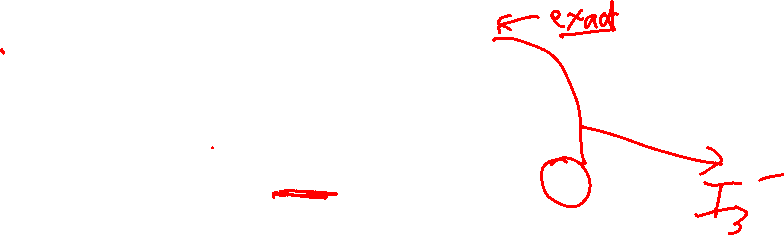 ← exact
I₃⁻